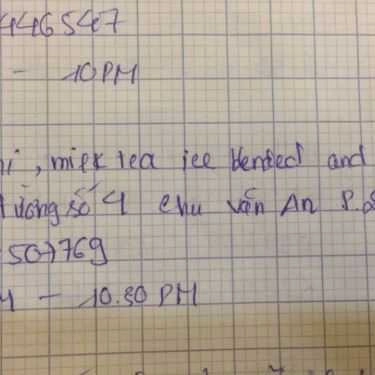 446547
- 10PM
, milk tea ice blended and
đường số 4 chu văn An P.
507769
- 10.30 PM